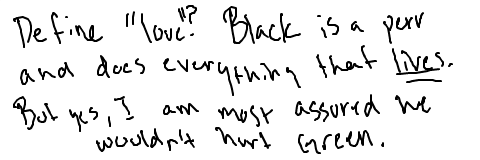 Define "love"? Black is a perv
and does everything that lives.
But yes, I am most assured he
wouldn't hurt Green.